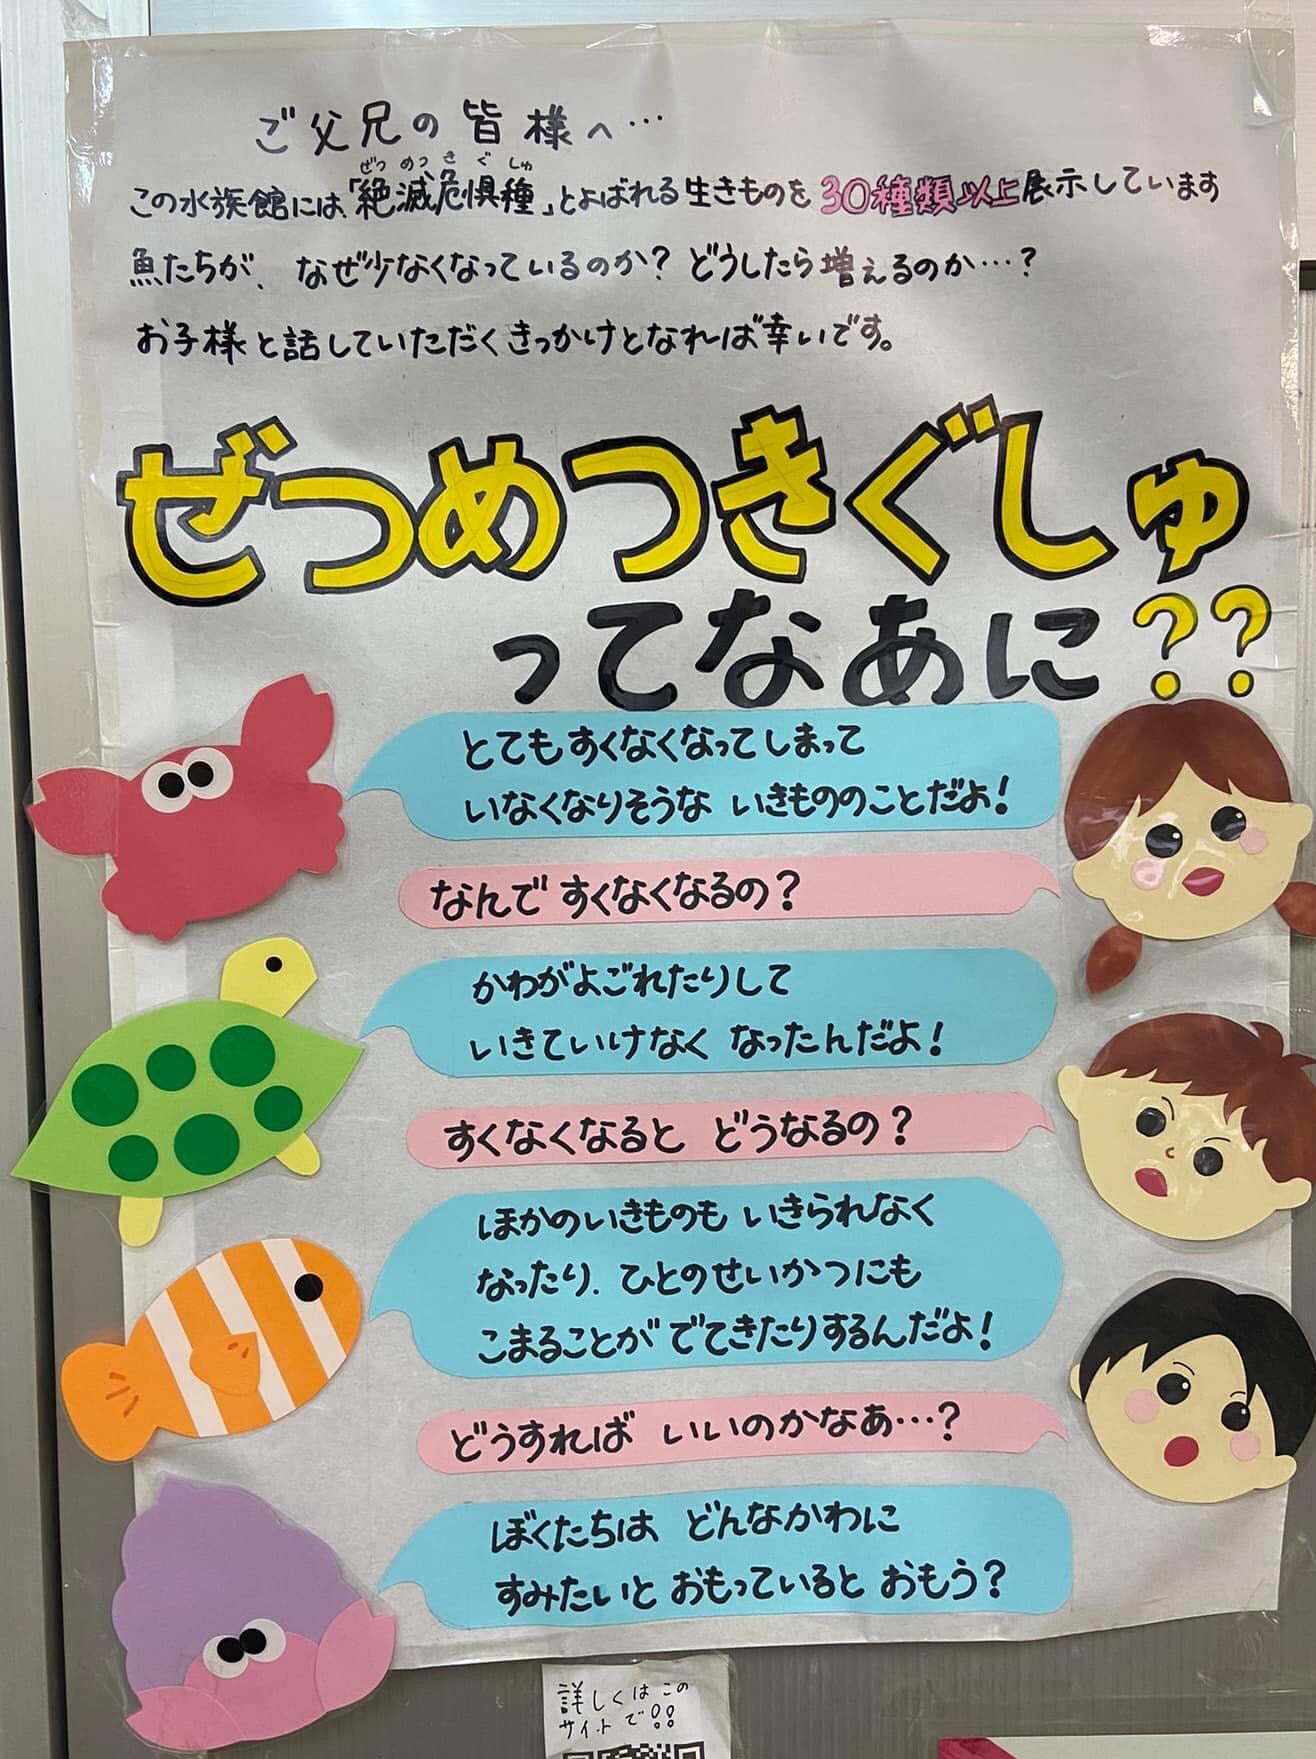 ご父兄の皆様へ…
ぜつめつきぐしゅ
この水族館には、「絶滅危惧種」とよばれる生きものを30種類以上展示しています
魚たちが、なぜ少なくなっているのか？どうしたら増えるのか…？
お子様と話していただくきっかけとなれば幸いです。
ぜつめつきぐしゅ
ってなあに？？
とてもすくなくなってしまって
いなくなりそうな いきもののことだよ！
なんで すくなくなるの？
かわがよごれたりして
いきていけなく なったんだよ！
すくなくなると どうなるの？
ほかのいきものも いきられなく
なったり、ひとのせいかつにも
こまることが でてきたりするんだよ！
どうすれば いいのかなあ…？
ぼくたちは どんなかわに
すみたいと おもっていると おもう？
詳しくはこの
サイトで!!